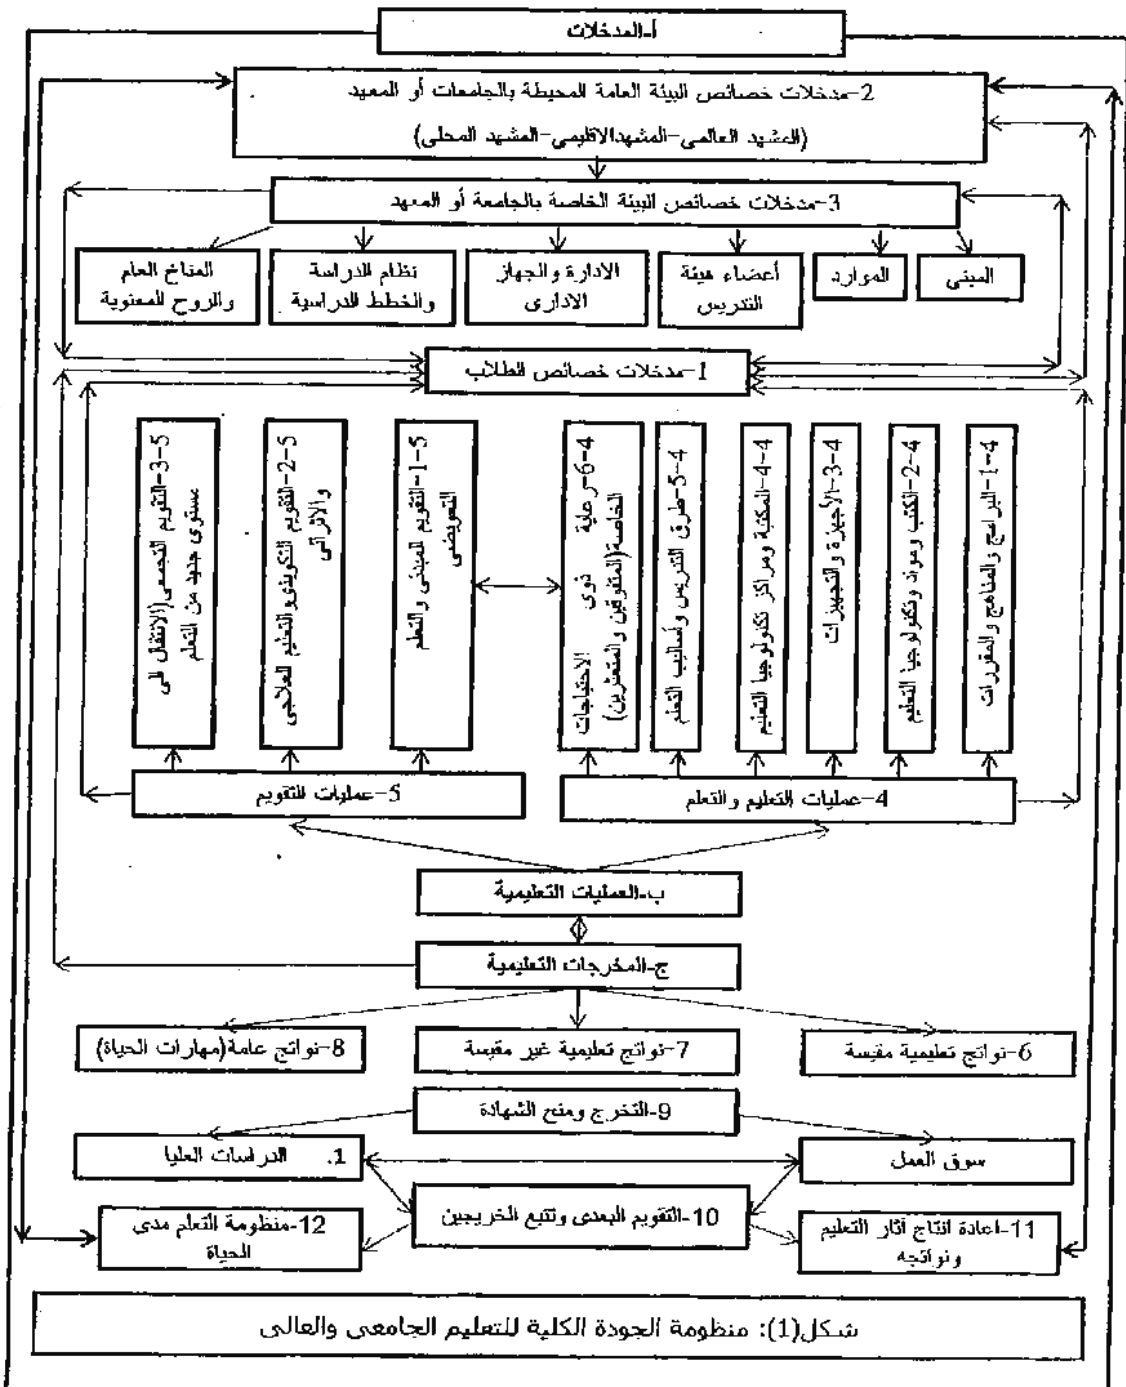 أ-المدخلات
2-مدخلات خصائص البيئة العامة المحيطة بالجامعات أو المعهد
(المشهد العالمى-المشهدالاقليمى-المشهد المحلى)
3-مدخلات خصائص البيئة الخاصة بالجامعة أو المعهد
المبنى
الموارد
أعضاء هيئة
التدريس
الادارة والجهاز
الادارى
نظام الدراسة
والخطط الدراسية
المناخ العام
والروح المعنوية
1-مدخلات خصائص الطلاب
4-1-البرامج والمناهج والمقررات
4-2-الكتب ومواد وتكنولوجيا التعليم
4-3-الأجهزة والتجهيزات
4-4-المكتبة ومراكز تكنولوجيا التعليم
4-5-طرق التدريس وأساليب التعلم
4-6-رعاية ذوى الاحتياجات
الخاصة(المتفوقين والمتعثرين)
5-1-التقويم المبدئى والتعلم
التعويضى
5-2-التقويم التكوينى والتعليم العلاجى
والاثرائى
5-3-التقويم التجمعى(الانتقال الى
مستوى جديد من التعلم
4-عمليات التعليم والتعلم
5-عمليات التقويم
ب-العمليات التعليمية
ج-المخرجات التعليمية
6-نواتج تعليمية مقيسة
7-نواتج تعليمية غير مقيسة
8-نواتج عامة(مهارات الحياة)
9-التخرج ومنح الشهادة
سوق العمل
1. الدراسات العليا
10-التقويم البعدى وتتبع الخريجين
11-اعادة انتاج آثار التعليم
ونواتجه
12-منظومة التعلم مدى
الحياة
شكل(1): منظومة الجودة الكلية للتعليم الجامعى والعالى